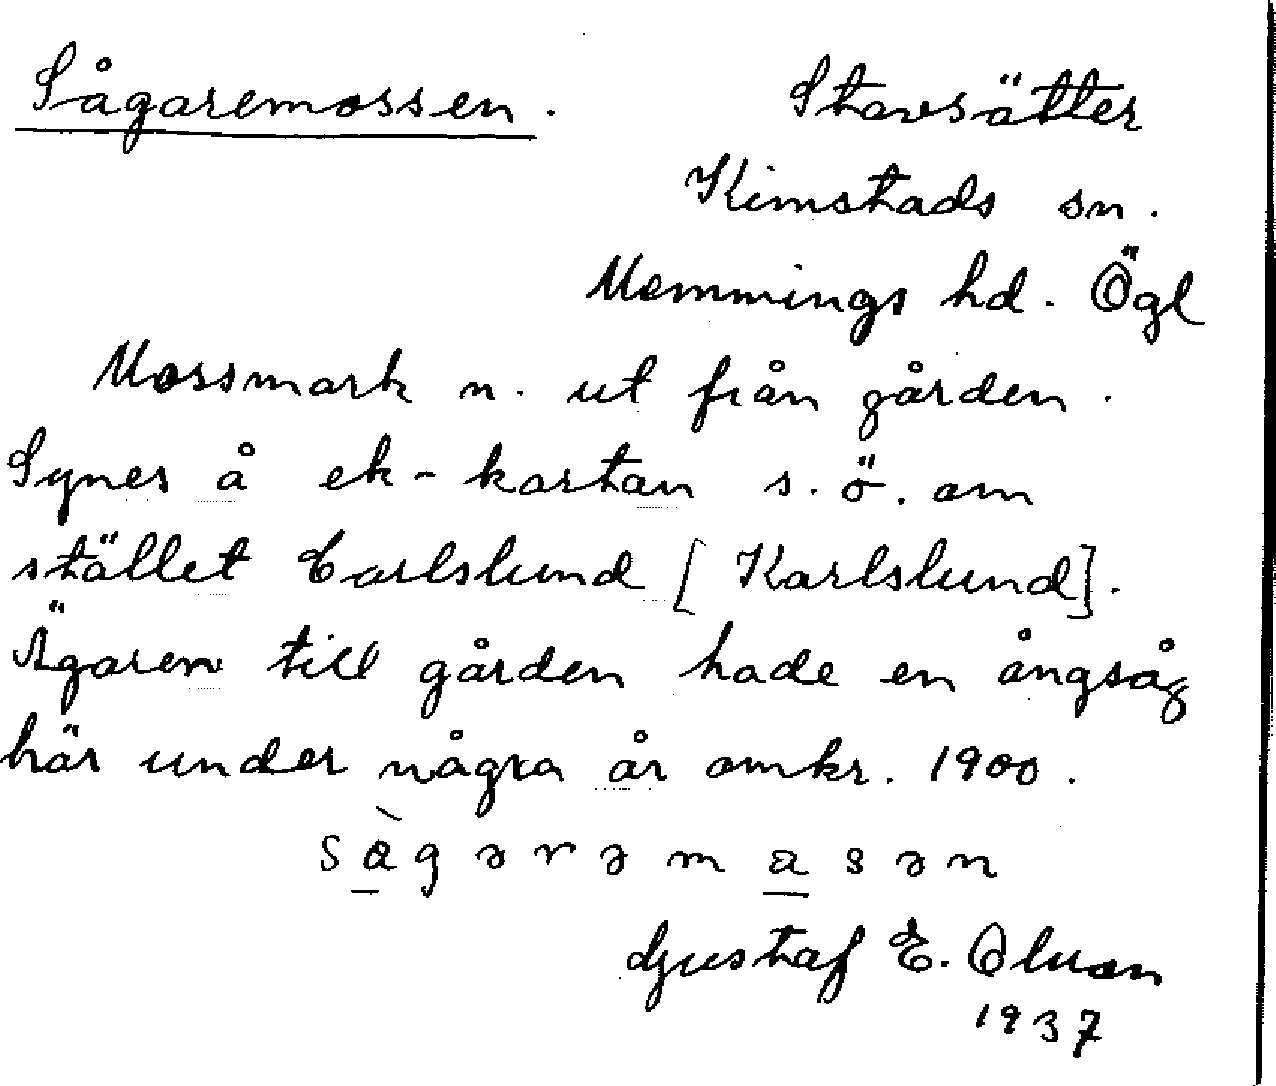 Sågaremossen. Stavsätter
Kimstads sn.
Memmings hd. Ögl
Mossmark n. ut från gården.
Synes å ek-kartan s. ö. om
stället Carlslund [Karlslund].
Ägaren till gården hade en ångsåg
här under några år omkr. 1900.
sàgərəmasən
Gustaf E. Olsson
1937